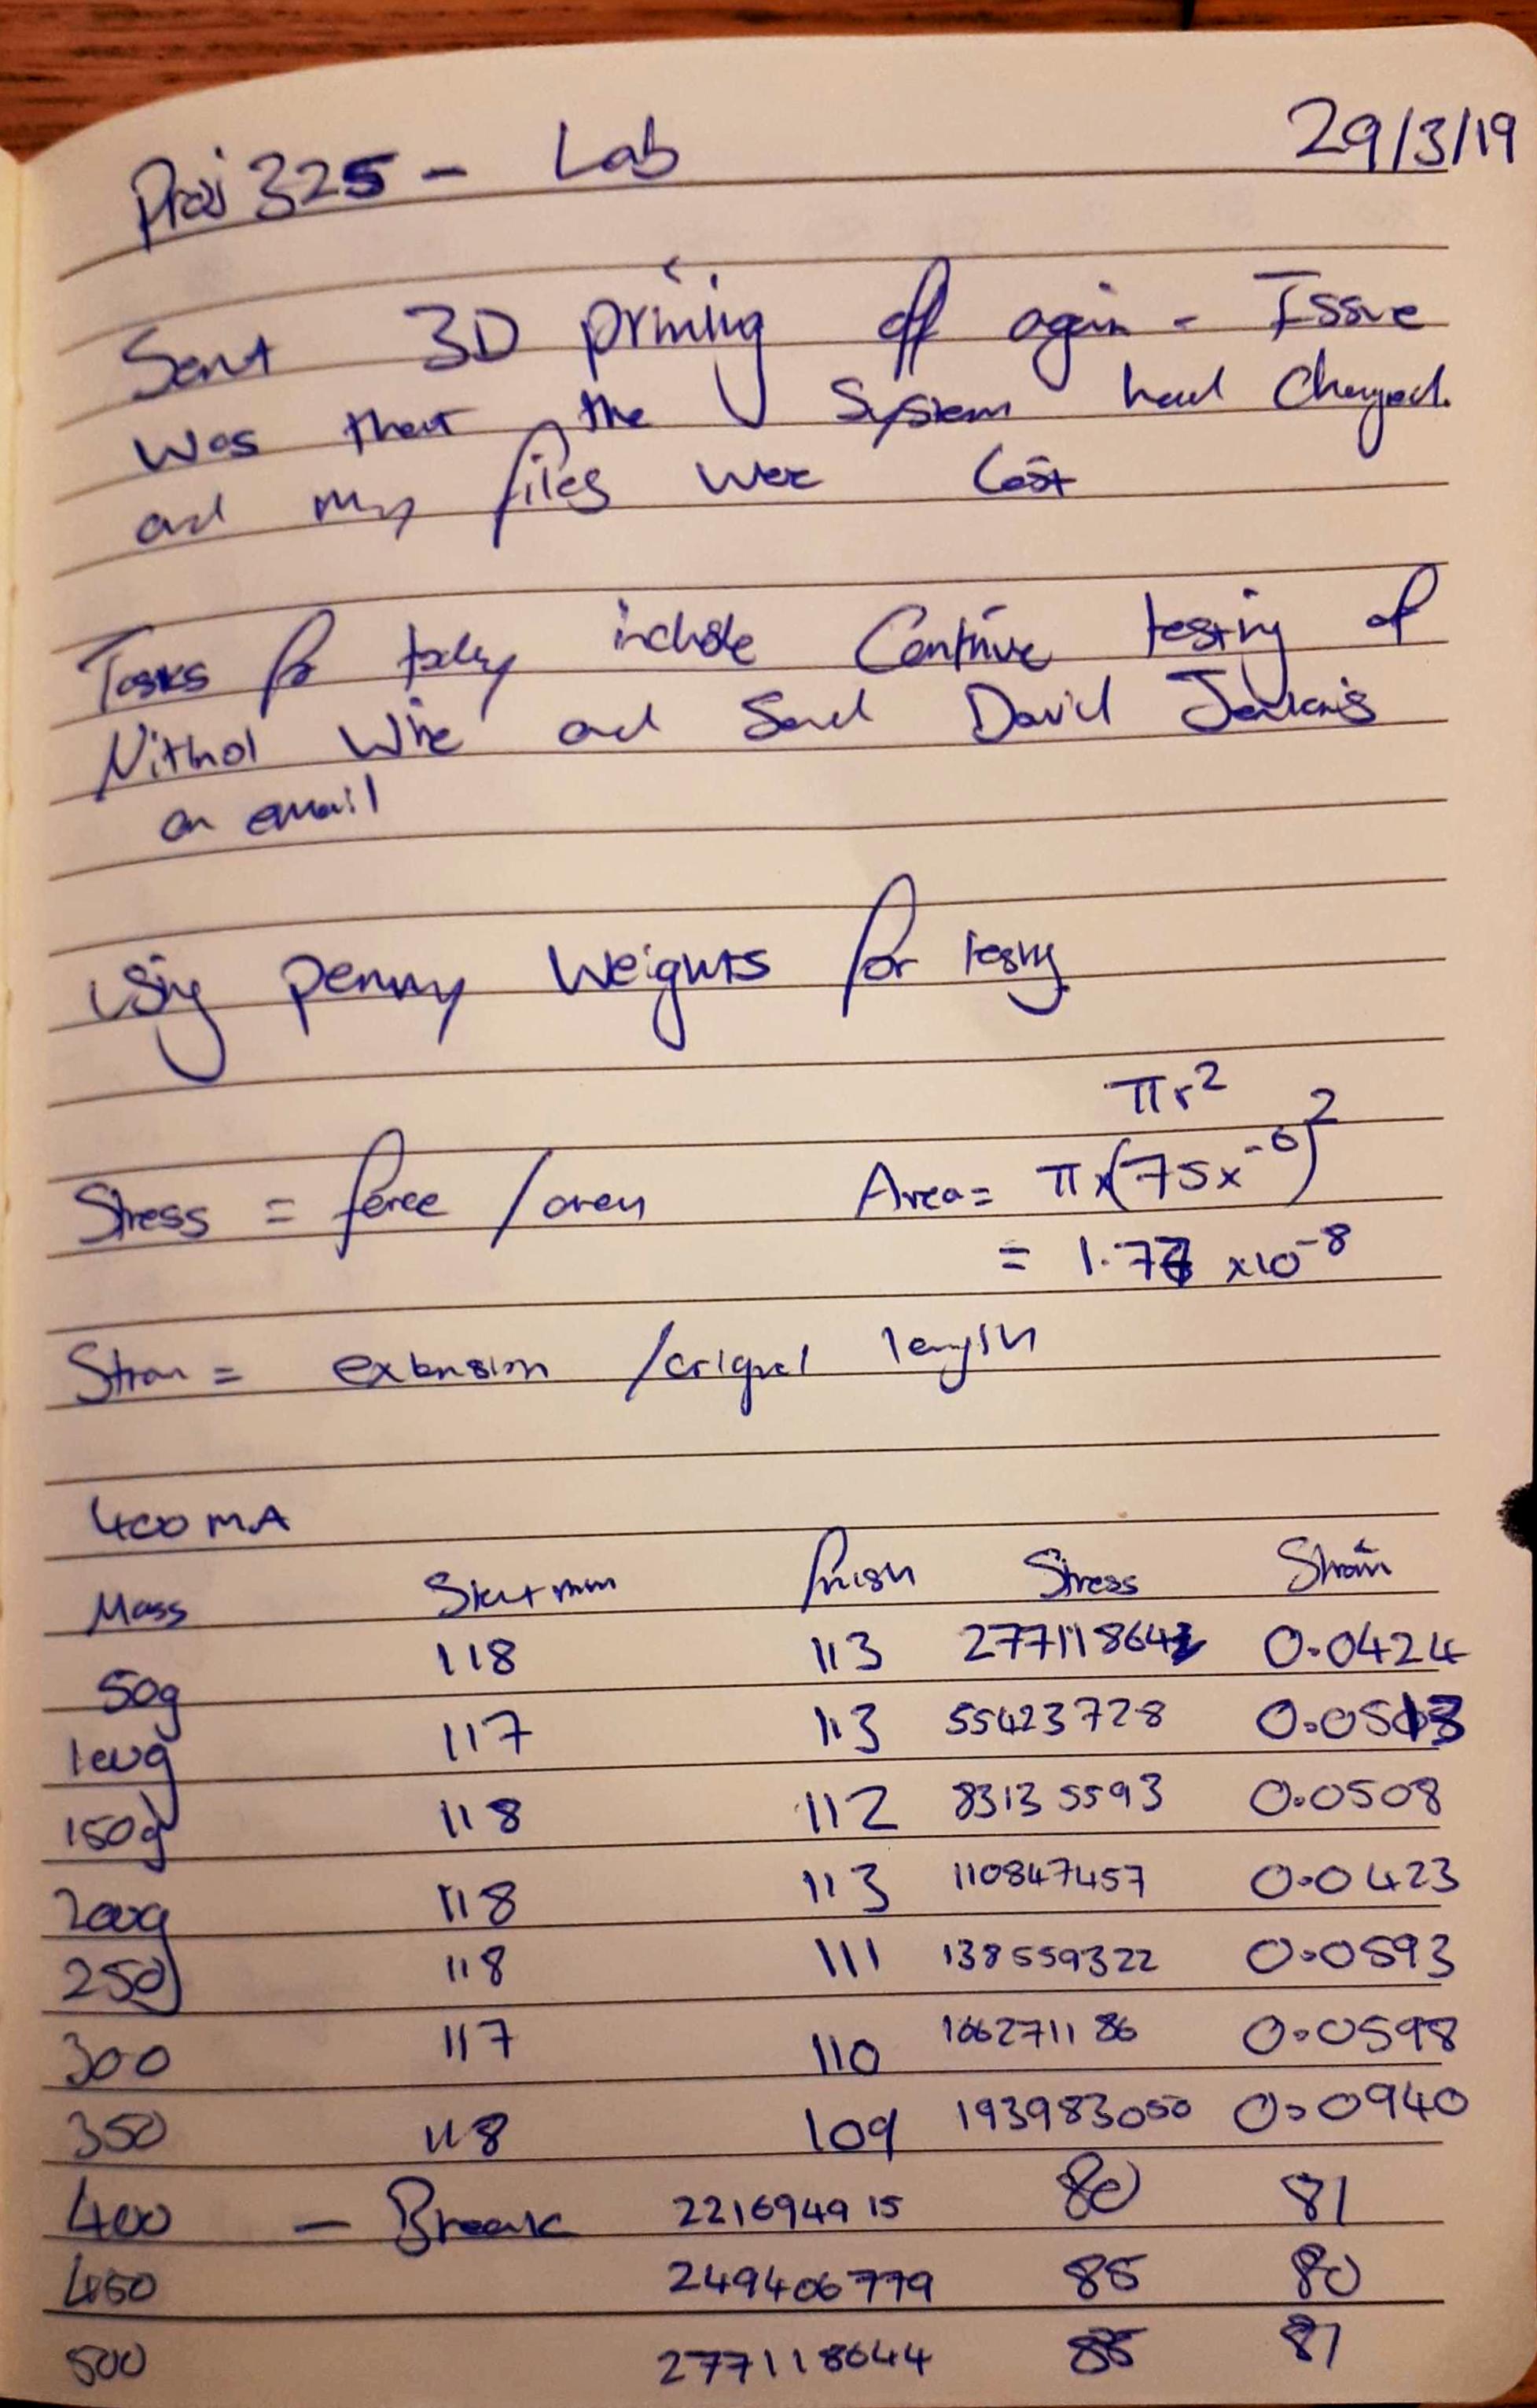 Proj 325 - Lab 29/3/19
Sent 3D printing off again - Issue
was that the System had Changed.
and my files were lost
Tasks for today include Continue testing of
Nitnol Wire and Send David Jenkins
an email
Using penny Weights for testing
πr²
Stress = force / area Area = π×(75x⁻⁶)²
= 1.77 x10⁻⁸
Strain = extension / original length
400 MA
Mass Start mm finish Stress Strain
50g 118 113 0.0424
100g 117 113 55423728 0.0513
150g 118 112 83135593 0.0508
200g 118 113 110847457 0.0423
250g 118 111 138559322 0.0593
300 117 110 166271186 0.0598
350 118 109 193983050 0.0940
400 - Break 221694915 80 81
450 249406779 85 80
500 277118644 85 81